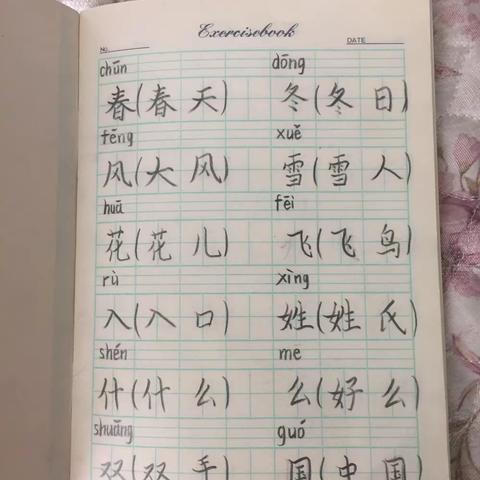 Exercisebook
No. DATE
chūn dōng
春(春天) 冬(冬日)
fēng xuě
风(大风) 雪(雪人)
huā fēi
花(花儿) 飞(飞鸟)
rù xìng
入(入口) 姓(姓氏)
shén me
什(什么) 么(好么)
shuāng guó
双(双手) 国(中国)